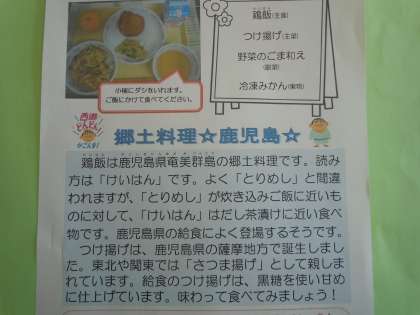 小椀にダシをいれます。
ご飯にかけて食べてください。
鶏飯(主食)
つけ揚げ(主菜)
野菜のごま和え
(副菜)
冷凍みかん(果物)
郷土料理☆鹿児島☆
鶏飯は鹿児島県奄美群島の郷土料理です。読み
方は「けいはん」です。よく「とりめし」と間違
われますが、「とりめし」が炊き込みご飯に近いも
のに対して、「けいはん」はだし茶漬けに近い食べ
物です。鹿児島県の給食によく登場するそうです。
つけ揚げは、鹿児島県の薩摩地方で誕生しまし
た。東北や関東では「さつま揚げ」として親しま
れています。給食のつけ揚げは、黒糖を使い甘め
に仕上げています。味わって食べてみましょう！